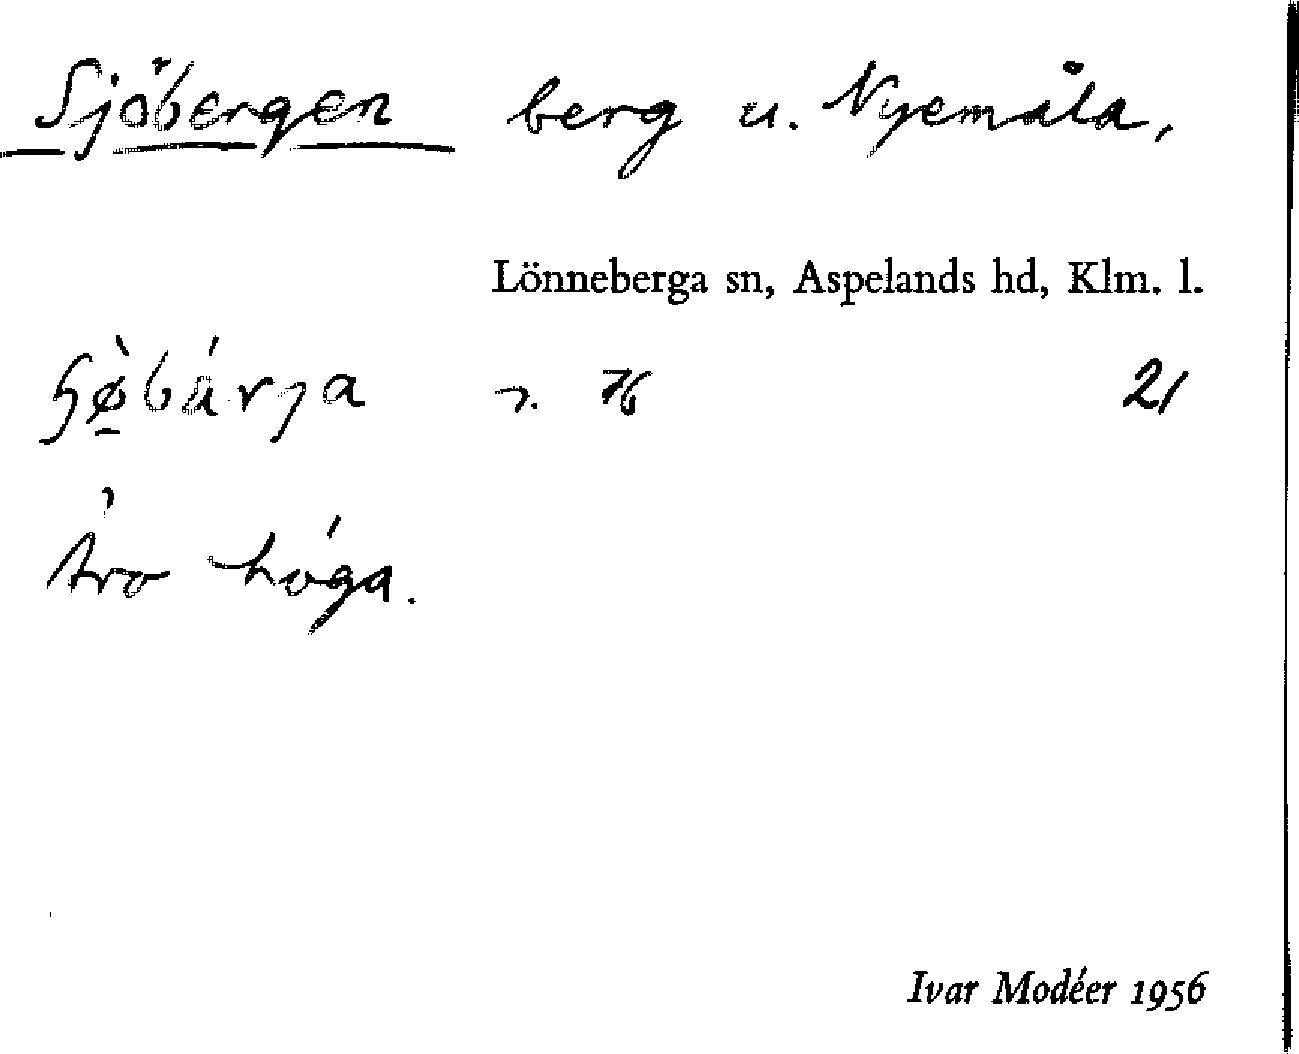 Sjöbergen berg u. Nyemåla,
Lönneberga sn, Aspelands hd, Klm. l.
ɧø̠̀bárja 21
höga.
Ivar Modéer 1956